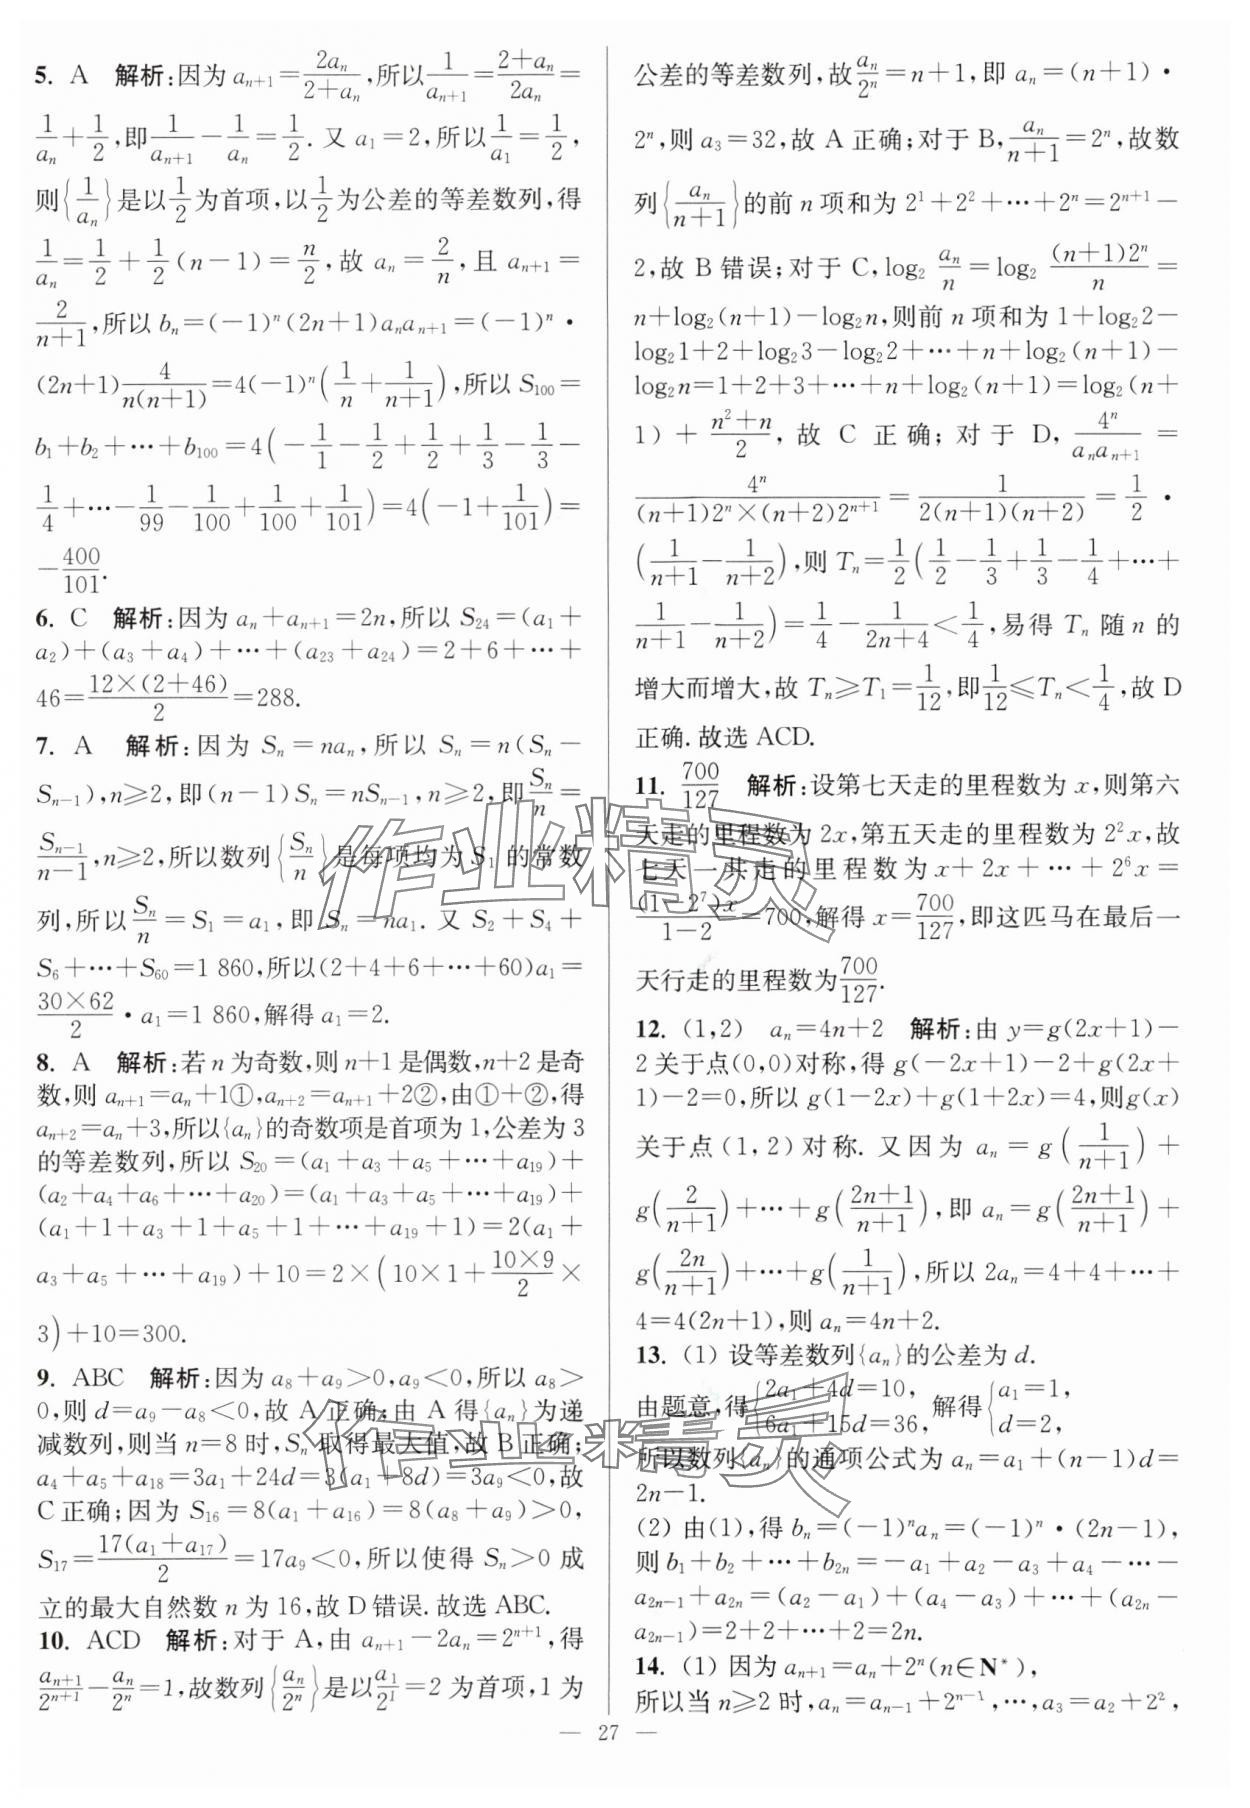 5. A 解析:因为 a_{n+1}=\frac{2a_n}{2+a_n},所以\frac{1}{a_{n+1}}=\frac{2+a_n}{2a_n}=
\frac{1}{a_n}+\frac{1}{2},即\frac{1}{a_{n+1}}-\frac{1}{a_n}=\frac{1}{2}. 又 a_1=2,所以\frac{1}{a_1}=\frac{1}{2},
则{\frac{1}{a_n}}是以\frac{1}{2}为首项,以\frac{1}{2}为公差的等差数列,得
\frac{1}{a_n}=\frac{1}{2}+\frac{1}{2}(n-1)=\frac{n}{2},故 a_n=\frac{2}{n},且 a_{n+1}=
\frac{2}{n+1},所以 b_n=(-1)^n(2n+1)a_na_{n+1}=(-1)^n·
(2n+1)\frac{4}{n(n+1)}=4(-1)^n(\frac{1}{n}+\frac{1}{n+1}),所以 S_{100}=
b_1+b_2+⋯+b_{100}=4(-\frac{1}{1}-\frac{1}{2}+\frac{1}{2}+\frac{1}{3}-\frac{1}{3}-
\frac{1}{4}+⋯-\frac{1}{99}-\frac{1}{100}+\frac{1}{100}+\frac{1}{101})=4(-1+\frac{1}{101})=
-\frac{400}{101}.
6. C 解析:因为 a_n+a_{n+1}=2n,所以 S_{24}=(a_1+
a_2)+(a_3+a_4)+⋯+(a_{23}+a_{24})=2+6+⋯+
46=\frac{12×(2+46)}{2}=288.
7. A 解析:因为 S_n=na_n,所以 S_n=n(S_n-
S_{n-1}),n≥2,即(n-1)S_n=nS_{n-1},n≥2,即\frac{S_n}{n}=
\frac{S_{n-1}}{n-1},n≥2,所以数列{\frac{S_n}{n}}是每项均为 S_1 的常数
列,所以\frac{S_n}{n}=S_1=a_1,即 S_n=na_1. 又 S_2+S_4+
S_6+⋯+S_{60}=1 860,所以(2+4+6+⋯+60)a_1=
\frac{30×62}{2}·a_1=1 860,解得 a_1=2.
8. A 解析:若 n 为奇数,则 n+1 是偶数,n+2 是奇
数,则 a_{n+1}=a_n+1①,a_{n+2}=a_{n+1}+2②,由①+②,得
a_{n+2}=a_n+3,所以{a_n}的奇数项是首项为 1,公差为 3
的等差数列,所以 S_{20}=(a_1+a_3+a_5+⋯+a_{19})+
(a_2+a_4+a_6+⋯+a_{20})=(a_1+a_3+a_5+⋯+a_{19})+
(a_1+1+a_3+1+a_5+1+⋯+a_{19}+1)=2(a_1+
a_3+a_5+⋯+a_{19})+10=2×(10×1+\frac{10×9}{2}×
3)+10=300.
9. ABC 解析:因为 a_8+a_9>0,a_9<0,所以 a_8>
0,则 d=a_9-a_8<0,故 A 正确;由 A 得{a_n}为递
减数列,则当 n=8 时,S_n 取得最大值,故 B 正确;
a_4+a_5+a_{18}=3a_1+24d=3(a_1+8d)=3a_9<0,故
C 正确;因为 S_{16}=8(a_1+a_{16})=8(a_8+a_9)>0,
S_{17}=\frac{17(a_1+a_{17})}{2}=17a_9<0,所以使得 S_n>0 成
立的最大自然数 n 为 16,故 D 错误.故选 ABC.
10. ACD 解析:对于 A,由 a_{n+1}-2a_n=2^{n+1},得
\frac{a_{n+1}}{2^{n+1}}-\frac{a_n}{2^n}=1,故数列{\frac{a_n}{2^n}}是以\frac{a_1}{2^1}=2 为首项,1 为
公差的等差数列,故\frac{a_n}{2^n}=n+1,即 a_n=(n+1)·
2^n,则 a_3=32,故 A 正确;对于 B,\frac{a_n}{n+1}=2^n,故数
列{\frac{a_n}{n+1}}的前 n 项和为 2^1+2^2+⋯+2^n=2^{n+1}-
2,故 B 错误;对于 C,log_2 \frac{a_n}{n}=log_2 \frac{(n+1)2^n}{n}=
n+log_2(n+1)-log_2n,则前 n 项和为 1+log_22-
log_21+2+log_23-log_22+⋯+n+log_2(n+1)-
log_2n=1+2+3+⋯+n+log_2(n+1)=log_2(n+
1)+\frac{n^2+n}{2},故 C 正确;对于 D,\frac{4^n}{a_na_{n+1}}=
\frac{4^n}{(n+1)2^n×(n+2)2^{n+1}}=\frac{1}{2(n+1)(n+2)}=\frac{1}{2}·
(\frac{1}{n+1}-\frac{1}{n+2}),则 T_n=\frac{1}{2}(\frac{1}{2}-\frac{1}{3}+\frac{1}{3}-\frac{1}{4}+⋯+
\frac{1}{n+1}-\frac{1}{n+2})=\frac{1}{4}-\frac{1}{2n+4}<\frac{1}{4},易得 T_n 随 n 的
增大而增大,故 T_n≥T_1=\frac{1}{12},即\frac{1}{12}≤T_n<\frac{1}{4},故 D
正确.故选 ACD.
11. \frac{700}{127} 解析:设第七天走的里程数为 x,则第六
天走的里程数为 2x,第五天走的里程数为 2^2x,故
七天一共走的里程数为 x+2x+⋯+2^6x=
\frac{(1-2^7)x}{1-2}=700,解得 x=\frac{700}{127},即这匹马在最后一
天行走的里程数为\frac{700}{127}.
12. (1,2) a_n=4n+2 解析:由 y=g(2x+1)-
2 关于点(0,0)对称,得 g(-2x+1)-2+g(2x+
1)-2=0,所以 g(1-2x)+g(1+2x)=4,则g(x)
关于点(1,2)对称. 又因为 a_n=g(\frac{1}{n+1})+
g(\frac{2}{n+1})+⋯+g(\frac{2n+1}{n+1}),即 a_n=g(\frac{2n+1}{n+1})+
g(\frac{2n}{n+1})+⋯+g(\frac{1}{n+1}),所以 2a_n=4+4+⋯+
4=4(2n+1),则 a_n=4n+2.
13. (1) 设等差数列{a_n}的公差为 d.
由题意,得{2a_1+4d=10, 6a_1+15d=36, 解得{a_1=1, d=2,
所以数列{a_n}的通项公式为 a_n=a_1+(n-1)d=
2n-1.
(2) 由(1),得 b_n=(-1)^na_n=(-1)^n·(2n-1),
则 b_1+b_2+⋯+b_{2n}=-a_1+a_2-a_3+a_4-⋯-
a_{2n-1}+a_{2n}=(a_2-a_1)+(a_4-a_3)+⋯+(a_{2n}-
a_{2n-1})=2+2+⋯+2=2n.
14. (1) 因为 a_{n+1}=a_n+2^n(n∈N^*),
所以当 n≥2 时,a_n=a_{n-1}+2^{n-1},⋯,a_3=a_2+2^2,
— 27 —
作业精灵
作业精灵